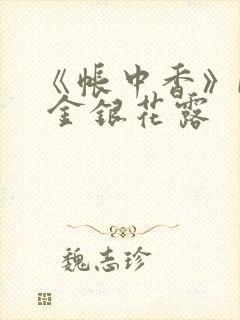 《帐中香》
金银花露
魏志珍